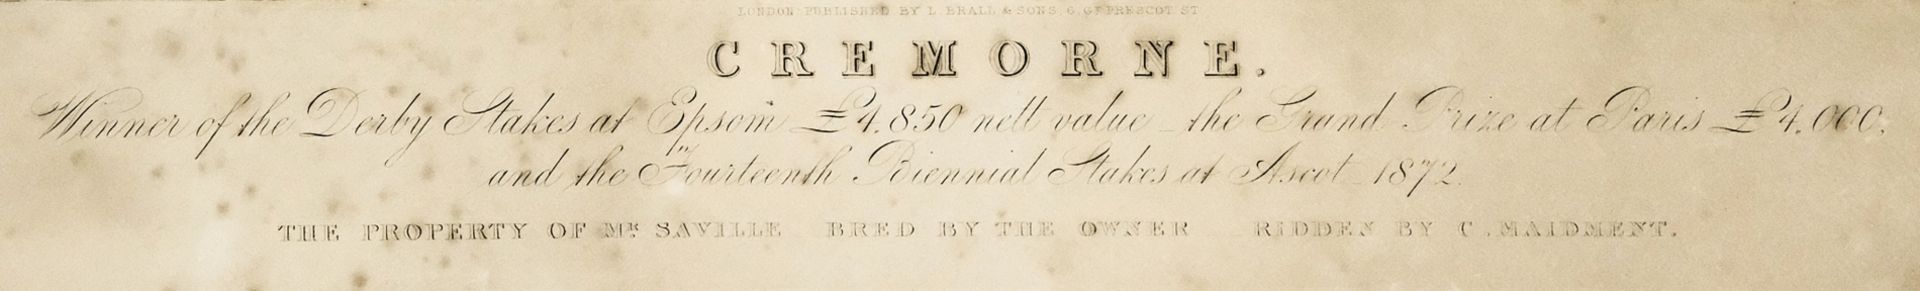 LONDON PUBLISHED BY L. BRALL & SONS, 6, GT PRESCOT ST
CREMORNE.
Winner of the Derby Stakes at Epsom £4,850 nett value _ the Grand Prize at Paris £4,000,
and the Fourteenth Biennial Stakes at Ascot _ 1872.
THE PROPERTY OF MR SAVILLE BRED BY THE OWNER RIDDEN BY C. MAIDMENT.